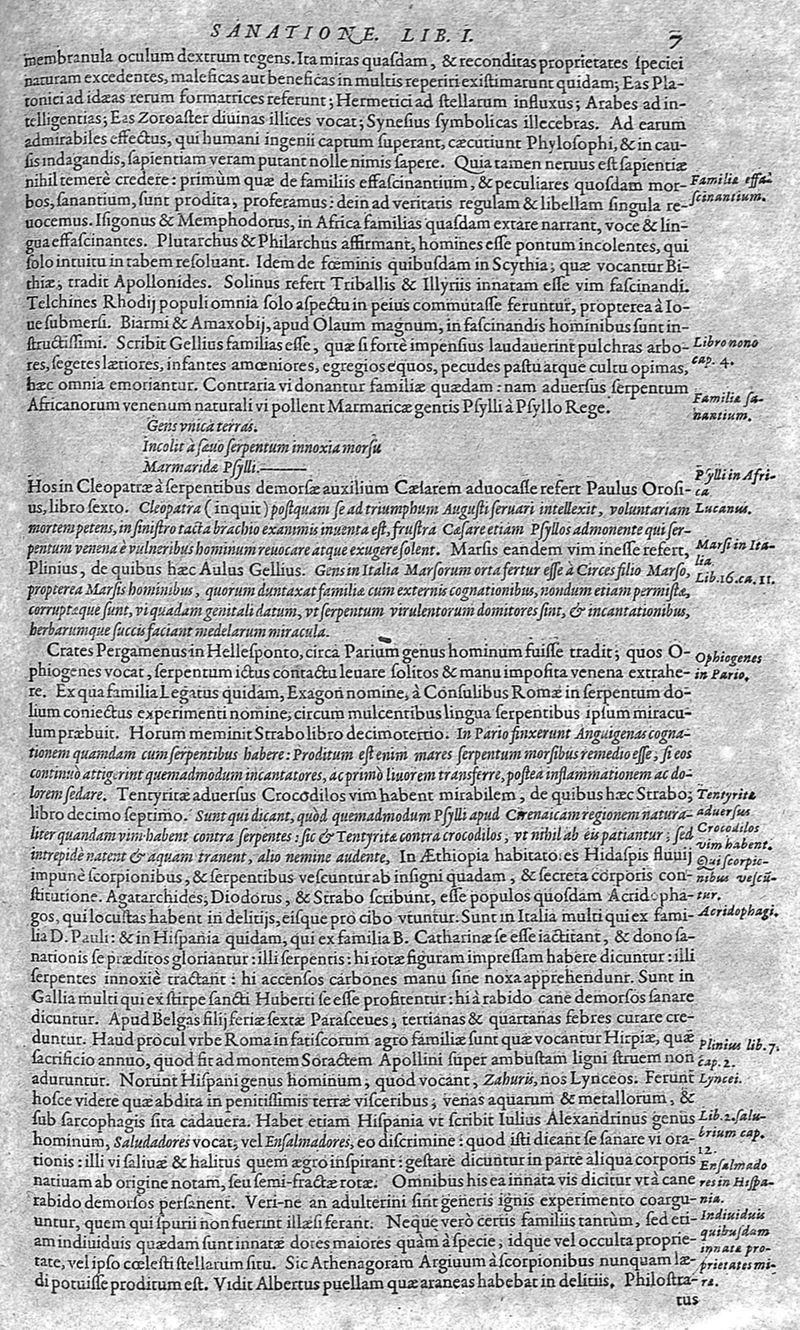 SANATIONE. LIB. I. 7
membranula oculum dextrum tegens. Ita miras quasdam, & reconditas proprietates speciei
naturam excedentes, maleficas aut beneficas in multis reperiri existimarunt quidam; Eas Pla-
tonici ad idæas rerum formatrices referunt; Hermetici ad stellarum influxus; Arabes ad in-
telligentias; Eas Zoroaster diuinas illices vocat; Synesius symbolicas illecebras. Ad earum
admirabiles effectus, qui humani ingenii captum superant, cæcutiunt Phylosophi, & in cau-
sis indagandis, sapientiam veram putant nolle nimis sapere. Quia tamen neruus est sapientiæ
nihil temerè credere: primùm quæ de familiis effascinantium, & peculiares quosdam mor-
Familiæ effa-
bos, sanantium, sunt prodita, proferamus: dein ad veritatis regulam & libellam singula re-
scinantium.
uocemus. Isigonus & Memphodorus, in Africa familias quasdam extare narrant, voce & lin-
gua effascinantes. Plutarchus & Philarchus affirmant, homines esse pontum incolentes, qui
solo intuitu in tabem resoluant. Idem de fœminis quibusdam in Scythia; quæ vocantur Bi-
thiæ, tradit Apollonides. Solinus refert Triballis & Illyriis innatam esse vim fascinandi.
Telchines Rhodij populi omnia solo aspectu in peius commutasse feruntur, propterea à Io-
ue submersi. Biarmi & Amaxobij, apud Olaum magnum, in fascinandis hominibus sunt in-
structissimi. Scribit Gellius familias esse, quæ si fortè impensius laudauerint pulchras arbo-
Libro nono
res, segetes lætiores, infantes amœniores, egregios equos, pecudes pastu atque cultu opimas,
cap. 4.
hæc omnia emoriantur. Contraria vi donantur familiæ quædam: nam aduersus serpentum
Familiæ sa-
Africanorum venenum naturali vi pollent Marmaricæ gentis Psylli à Psyllo Rege.
nantium.
Gens vnica terras.
Incolit à sæuo serpentum innoxia morsu
Marmaridæ Psylli.———
Psylli in Afri-
Hos in Cleopatræ à serpentibus demorsæ auxilium Cæsarem aduocasse refert Paulus Orosi-
ca.
us, libro sexto. Cleopatra (inquit) postquam se ad triumphum Augusti seruari intellexit, voluntariam
Lucanus.
mortem petens, in sinistro tacta brachio exanimis inuenta est, frustra Cæsare etiam Psyllos admonente qui ser-
pentum venena è vulneribus hominum reuocare atque exugere solent. Marsis eandem vim inesse refert,
Marsi in Ita-
lia.
Plinius, de quibus hæc Aulus Gellius. Gens in Italia Marsorum orta fertur esse à Circes filio Marso,
Lib. 16. ca. 11.
propterea Marsis hominibus, quorum duntaxat familiæ cum externis cognationibus, nondum etiam permistæ,
corruptæque sunt, vi quadam genitali datum, vt serpentum virulentorum domitores sint, & incantationibus,
herbarumque succis faciant medelarum miracula.
Crates Pergamenus in Hellesponto, circa Parium genus hominum fuisse tradit; quos O-
Ophiogenes
phiogenes vocat, serpentum ictus contactu leuare solitos & manu imposita venena extrahe-
in Pario.
re. Ex qua familia Legatus quidam, Exagon nomine, à Consulibus Romæ in serpentum do-
lium coniectus experimenti nomine, circum mulcentibus lingua serpentibus ipsum miracu-
lum præbuit. Horum meminit Strabo libro decimotertio. In Pario finxerunt Anguigenas cogna-
tionem quamdam cum serpentibus habere: Proditum est enim mares serpentum morsibus remedio esse, si eos
continuò attigerint quemadmodum incantatores, ac primò liuorem transferre, postea inflammationem ac do-
lorem sedare. Tentyritæ aduersus Crocodilos vim habent mirabilem, de quibus hæc Strabo;
Tentyritæ
libro decimo septimo. Sunt qui dicant, quòd quemadmodum Psylli apud Cirenaicam regionem natura-
aduersus
liter quandam vim habent contra serpentes: sic & Tentyritæ contra crocodilos, vt nihil ab eis patiantur; sed
Crocodilos
vim habent.
intrepidè natent & aquam tranent, alio nemine audente, In Æthiopia habitatores Hidaspis fluuij
Qui scorpio-
impunè scorpionibus, & serpentibus vescuntur ab insigni quadam, & secreta corporis con-
nibus vescū-
stitutione. Agatarchides, Diodorus, & Strabo scribunt, esse populos quosdam Acridopha-
tur.
gos, qui locustas habent in delitijs, eisque pro cibo vtuntur. Sunt in Italia multi qui ex fami-
Acridophagi.
lia D. Pauli: & in Hispania quidam, qui ex familia B. Catharinæ se esse iactitant, & dono sa-
nationis se præditos gloriantur: illi serpentis: hi rotæ figuram impressam habere dicuntur: illi
serpentes innoxiè tractant: hi accensos carbones manu sine noxa apprehendunt. Sunt in
Gallia multi qui ex stirpe sancti Huberti se esse profitentur: hi à rabido cane demorsos sanare
dicuntur. Apud Belgas filij feriæ sextæ Parasceues; tertianas & quartanas febres curare cre-
duntur. Haud procul vrbe Roma in fatiscorum agro familiæ sunt quæ vocantur Hirpiæ, quæ
Plinius lib. 7.
sacrificio annuo, quod fit ad montem Soractem Apollini super ambustam ligni struem non
cap. 2.
aduruntur. Norunt Hispani genus hominum, quod vocant, Zahuris, nos Lynceos. Ferunt
Lyncei.
hosce videre quæ abdita in penitissimis terræ visceribus, venas aquarum & metallorum, &
sub sarcophagis sita cadauera. Habet etiam Hispania vt scribit Iulius Alexandrinus genus
Lib. 2. salu-
hominum, Saludadores vocat, vel Ensalmadores, eo discrimine: quod isti dicant se sanare vi ora-
brium cap.
12.
tionis: illi vi saliuæ & halitus quem ægro inspirant: gestare dicuntur in parte aliqua corporis
Ensalmado
natiuam ab origine notam, seu semi-fractæ rotæ. Omnibus his ea innata vis dicitur vt à cane
res in Hispa-
rabido demorsos persanent. Veri-ne an adulterini sint generis ignis experimento coargu-
nia.
untur, quem qui spurii non fuerint illæsi ferant. Neque verò certis familiis tantùm, sed eti-
Indiuiduis
quibusdam
am indiuiduis quædam sunt innatæ dotes maiores quàm à specie; idque vel occulta proprie-
innatæ pro-
tate, vel ipso cœlesti stellarum situ. Sic Athenagoram Argiuum à scorpionibus nunquam læ-
prietates mi-
di potuisse proditum est. Vidit Albertus puellam quæ araneas habebat in delitiis. Philostra-
ræ.
tus